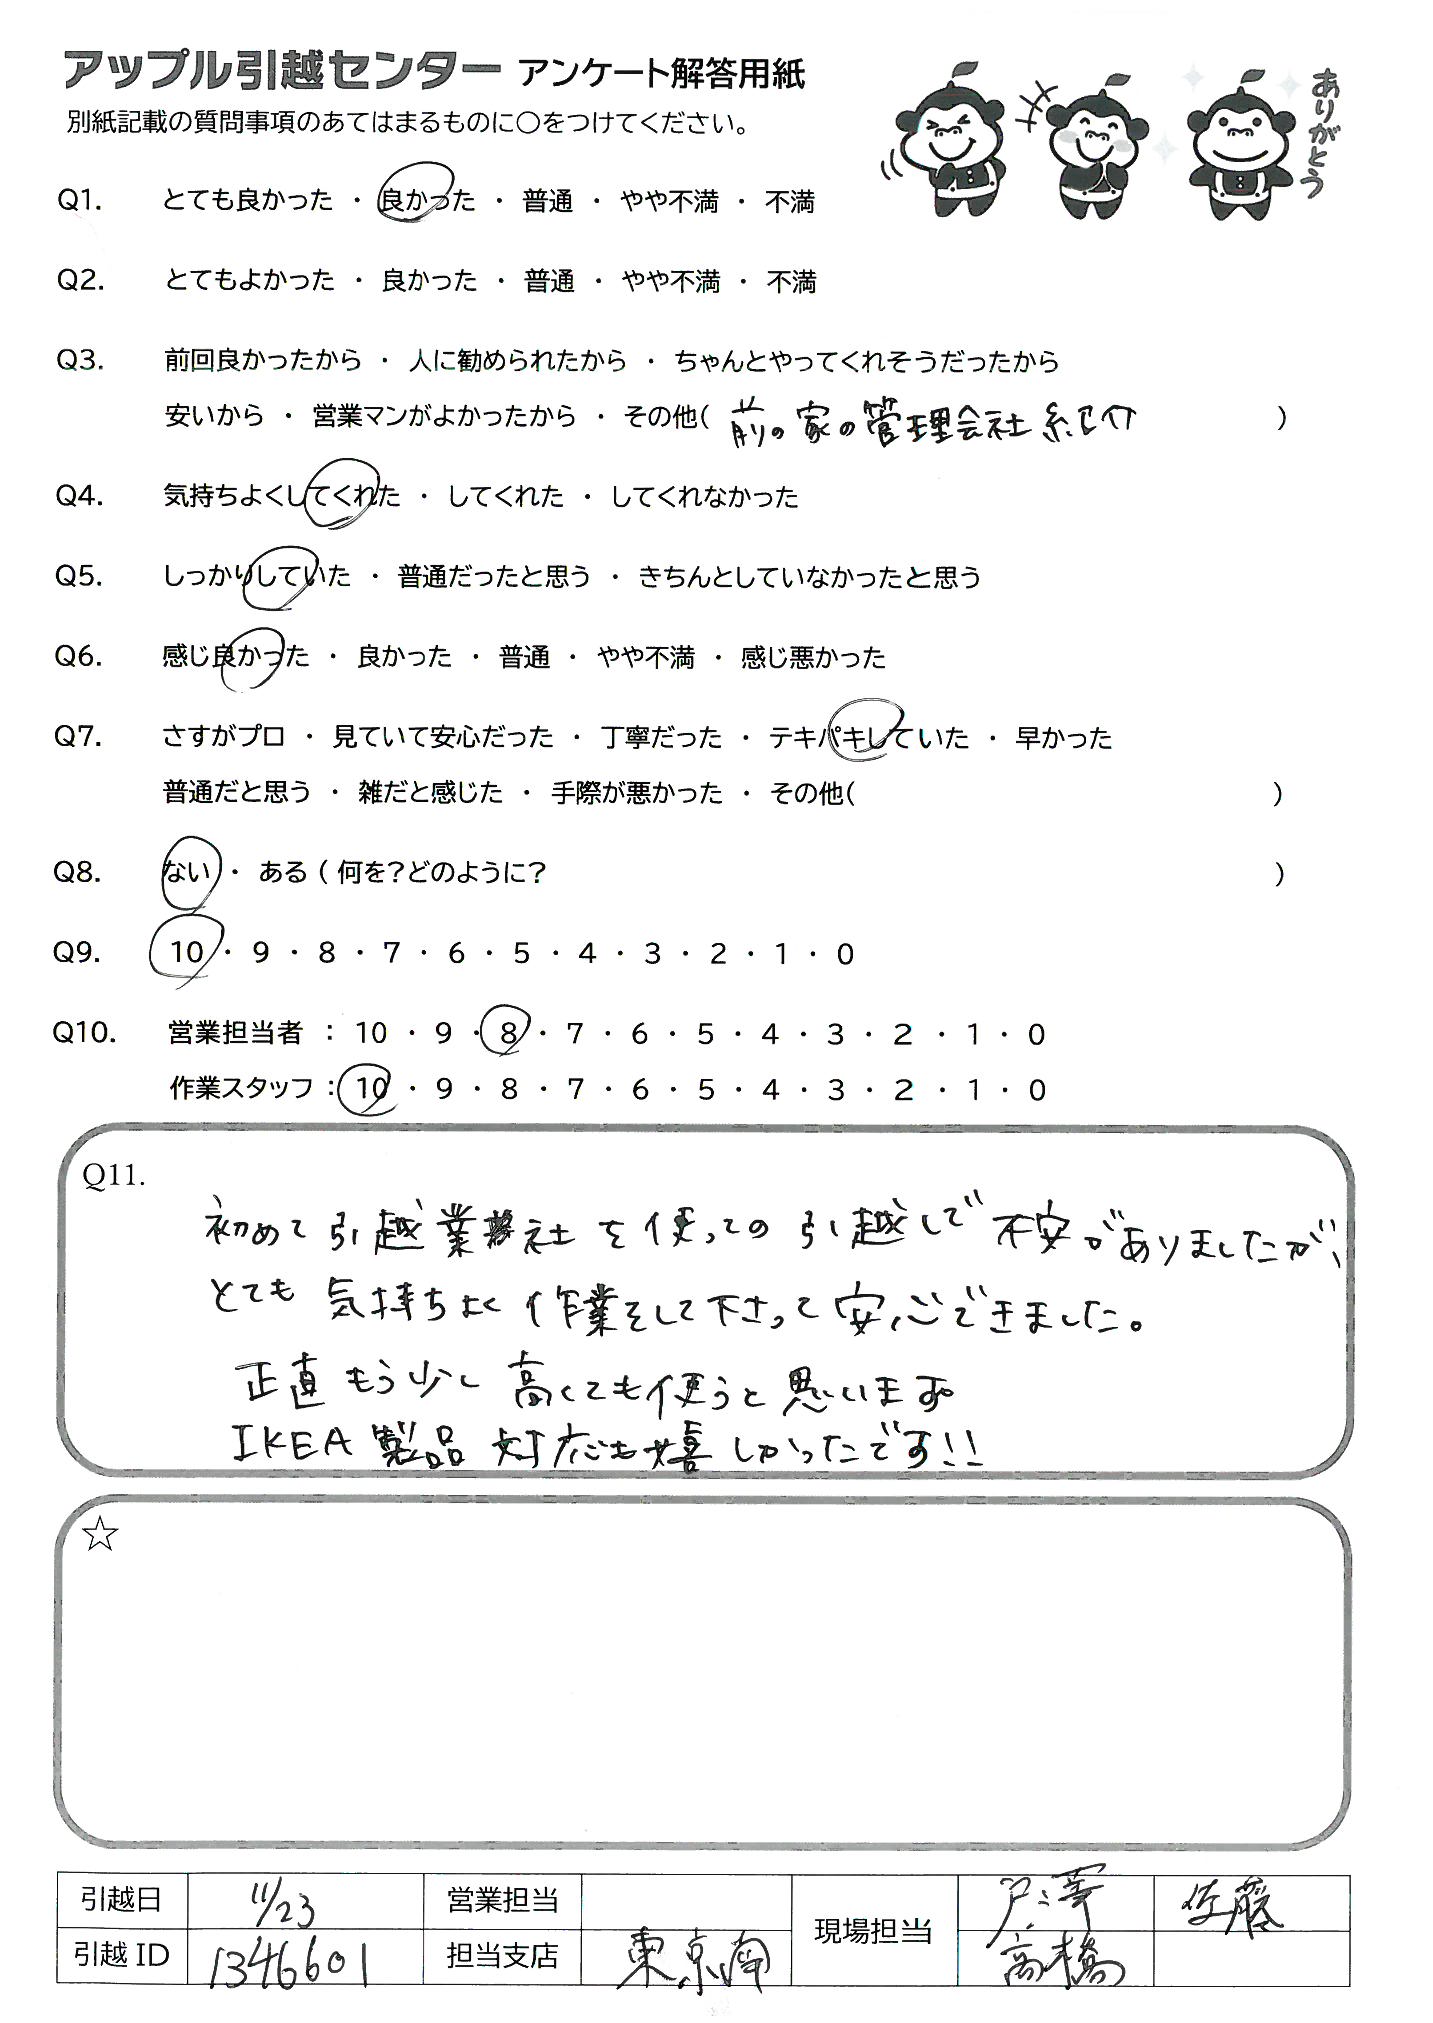 アップル引越センター アンケート解答用紙
ありがとう
別紙記載の質問事項のあてはまるものに〇をつけてください。
Q1. とても良かった ・ 良かった ・ 普通 ・ やや不満 ・ 不満
Q2. とてもよかった ・ 良かった ・ 普通 ・ やや不満 ・ 不満
Q3. 前回良かったから ・ 人に勧められたから ・ ちゃんとやってくれそうだったから
安いから ・ 営業マンがよかったから ・ その他( 前の家の管理会社紹介 )
Q4. 気持ちよくしてくれた ・ してくれた ・ してくれなかった
Q5. しっかりしていた ・ 普通だったと思う ・ きちんとしていなかったと思う
Q6. 感じ良かった ・ 良かった ・ 普通 ・ やや不満 ・ 感じ悪かった
Q7. さすがプロ ・ 見ていて安心だった ・ 丁寧だった ・ テキパキしていた ・ 早かった
普通だと思う ・ 雑だと感じた ・ 手際が悪かった ・ その他( )
Q8. ない ・ ある ( 何を?どのように? )
Q9. 10 ・ 9 ・ 8 ・ 7 ・ 6 ・ 5 ・ 4 ・ 3 ・ 2 ・ 1 ・ 0
Q10. 営業担当者 : 10 ・ 9 ・ 8 ・ 7 ・ 6 ・ 5 ・ 4 ・ 3 ・ 2 ・ 1 ・ 0
作業スタッフ : 10 ・ 9 ・ 8 ・ 7 ・ 6 ・ 5 ・ 4 ・ 3 ・ 2 ・ 1 ・ 0
Q11.
初めて引越業社を使っての引越しで不安がありましたが、
とても気持ちよく作業をして下さって安心できました。
正直もう少し高くても使うと思います。
IKEA製品対応も嬉しかったです!!
☆
引越日 11/23 営業担当 現場担当 戸澤 佐藤
引越ID 1346601 担当支店 東京南 高橋